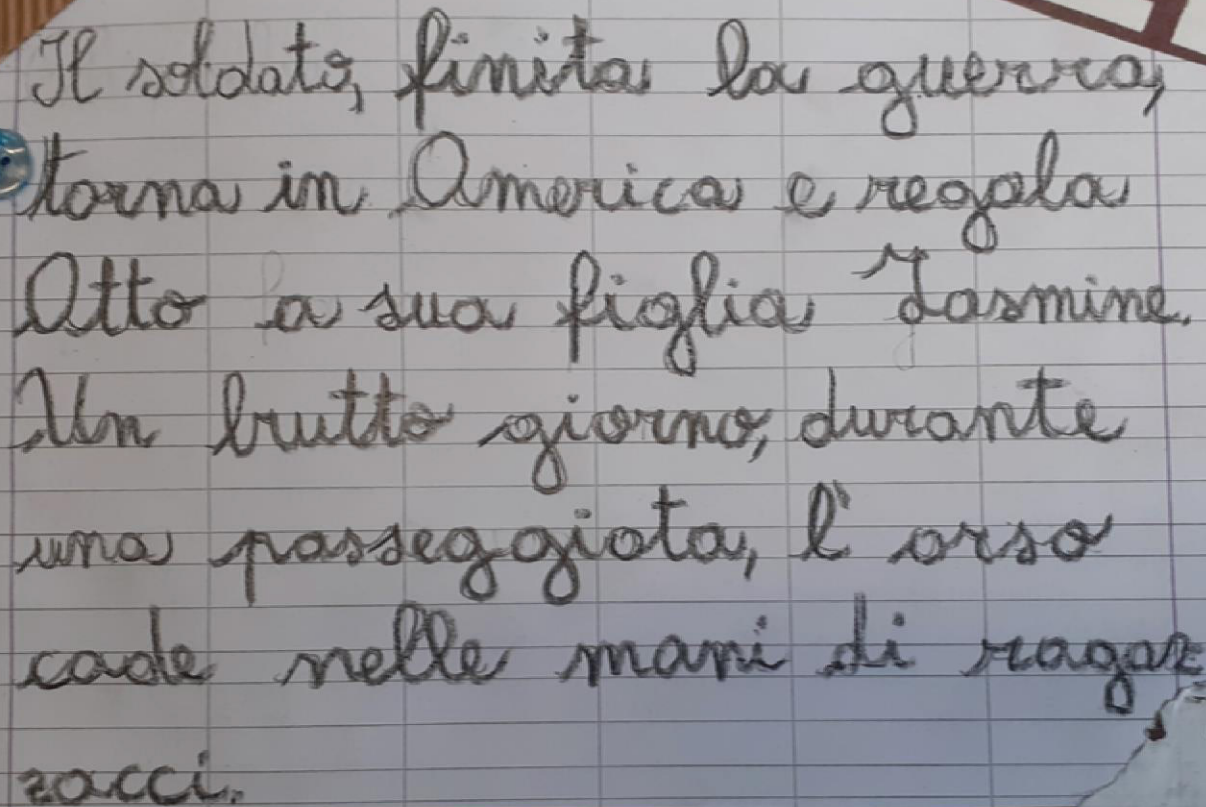 Il soldato, finita la guerra,
torna in America e regala
Otto a sua figlia Iasmine.
Un brutto giorno, durante
una passeggiata, l'orso
cade nelle mani di ragaz
zacci.